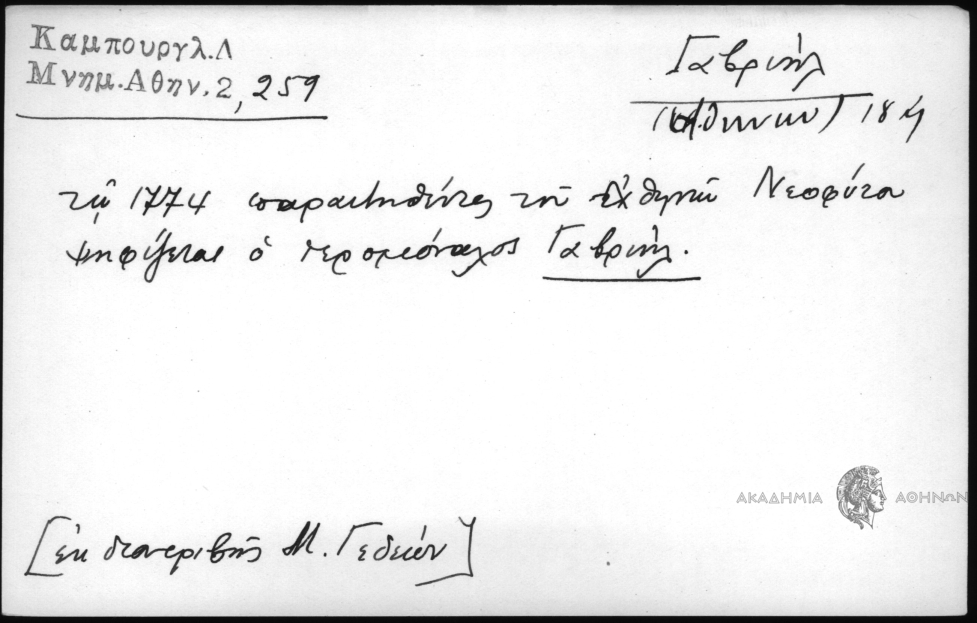 Καμπουργλ.Λ
Μνημ.Αθην.2, 259
Γαβριήλ
(Ἀθηνῶν) 18
τῷ 1774 παραιτηθέντος τοῦ Νεοφύτου
ψηφίζεται ὁ ἱερομόναχος Γαβριήλ.
ΑΚΑΔΗΜΙΑ ΑΘΗΝΩΝ
[ἐκ διατριβῆς Μ. Γεδεών]